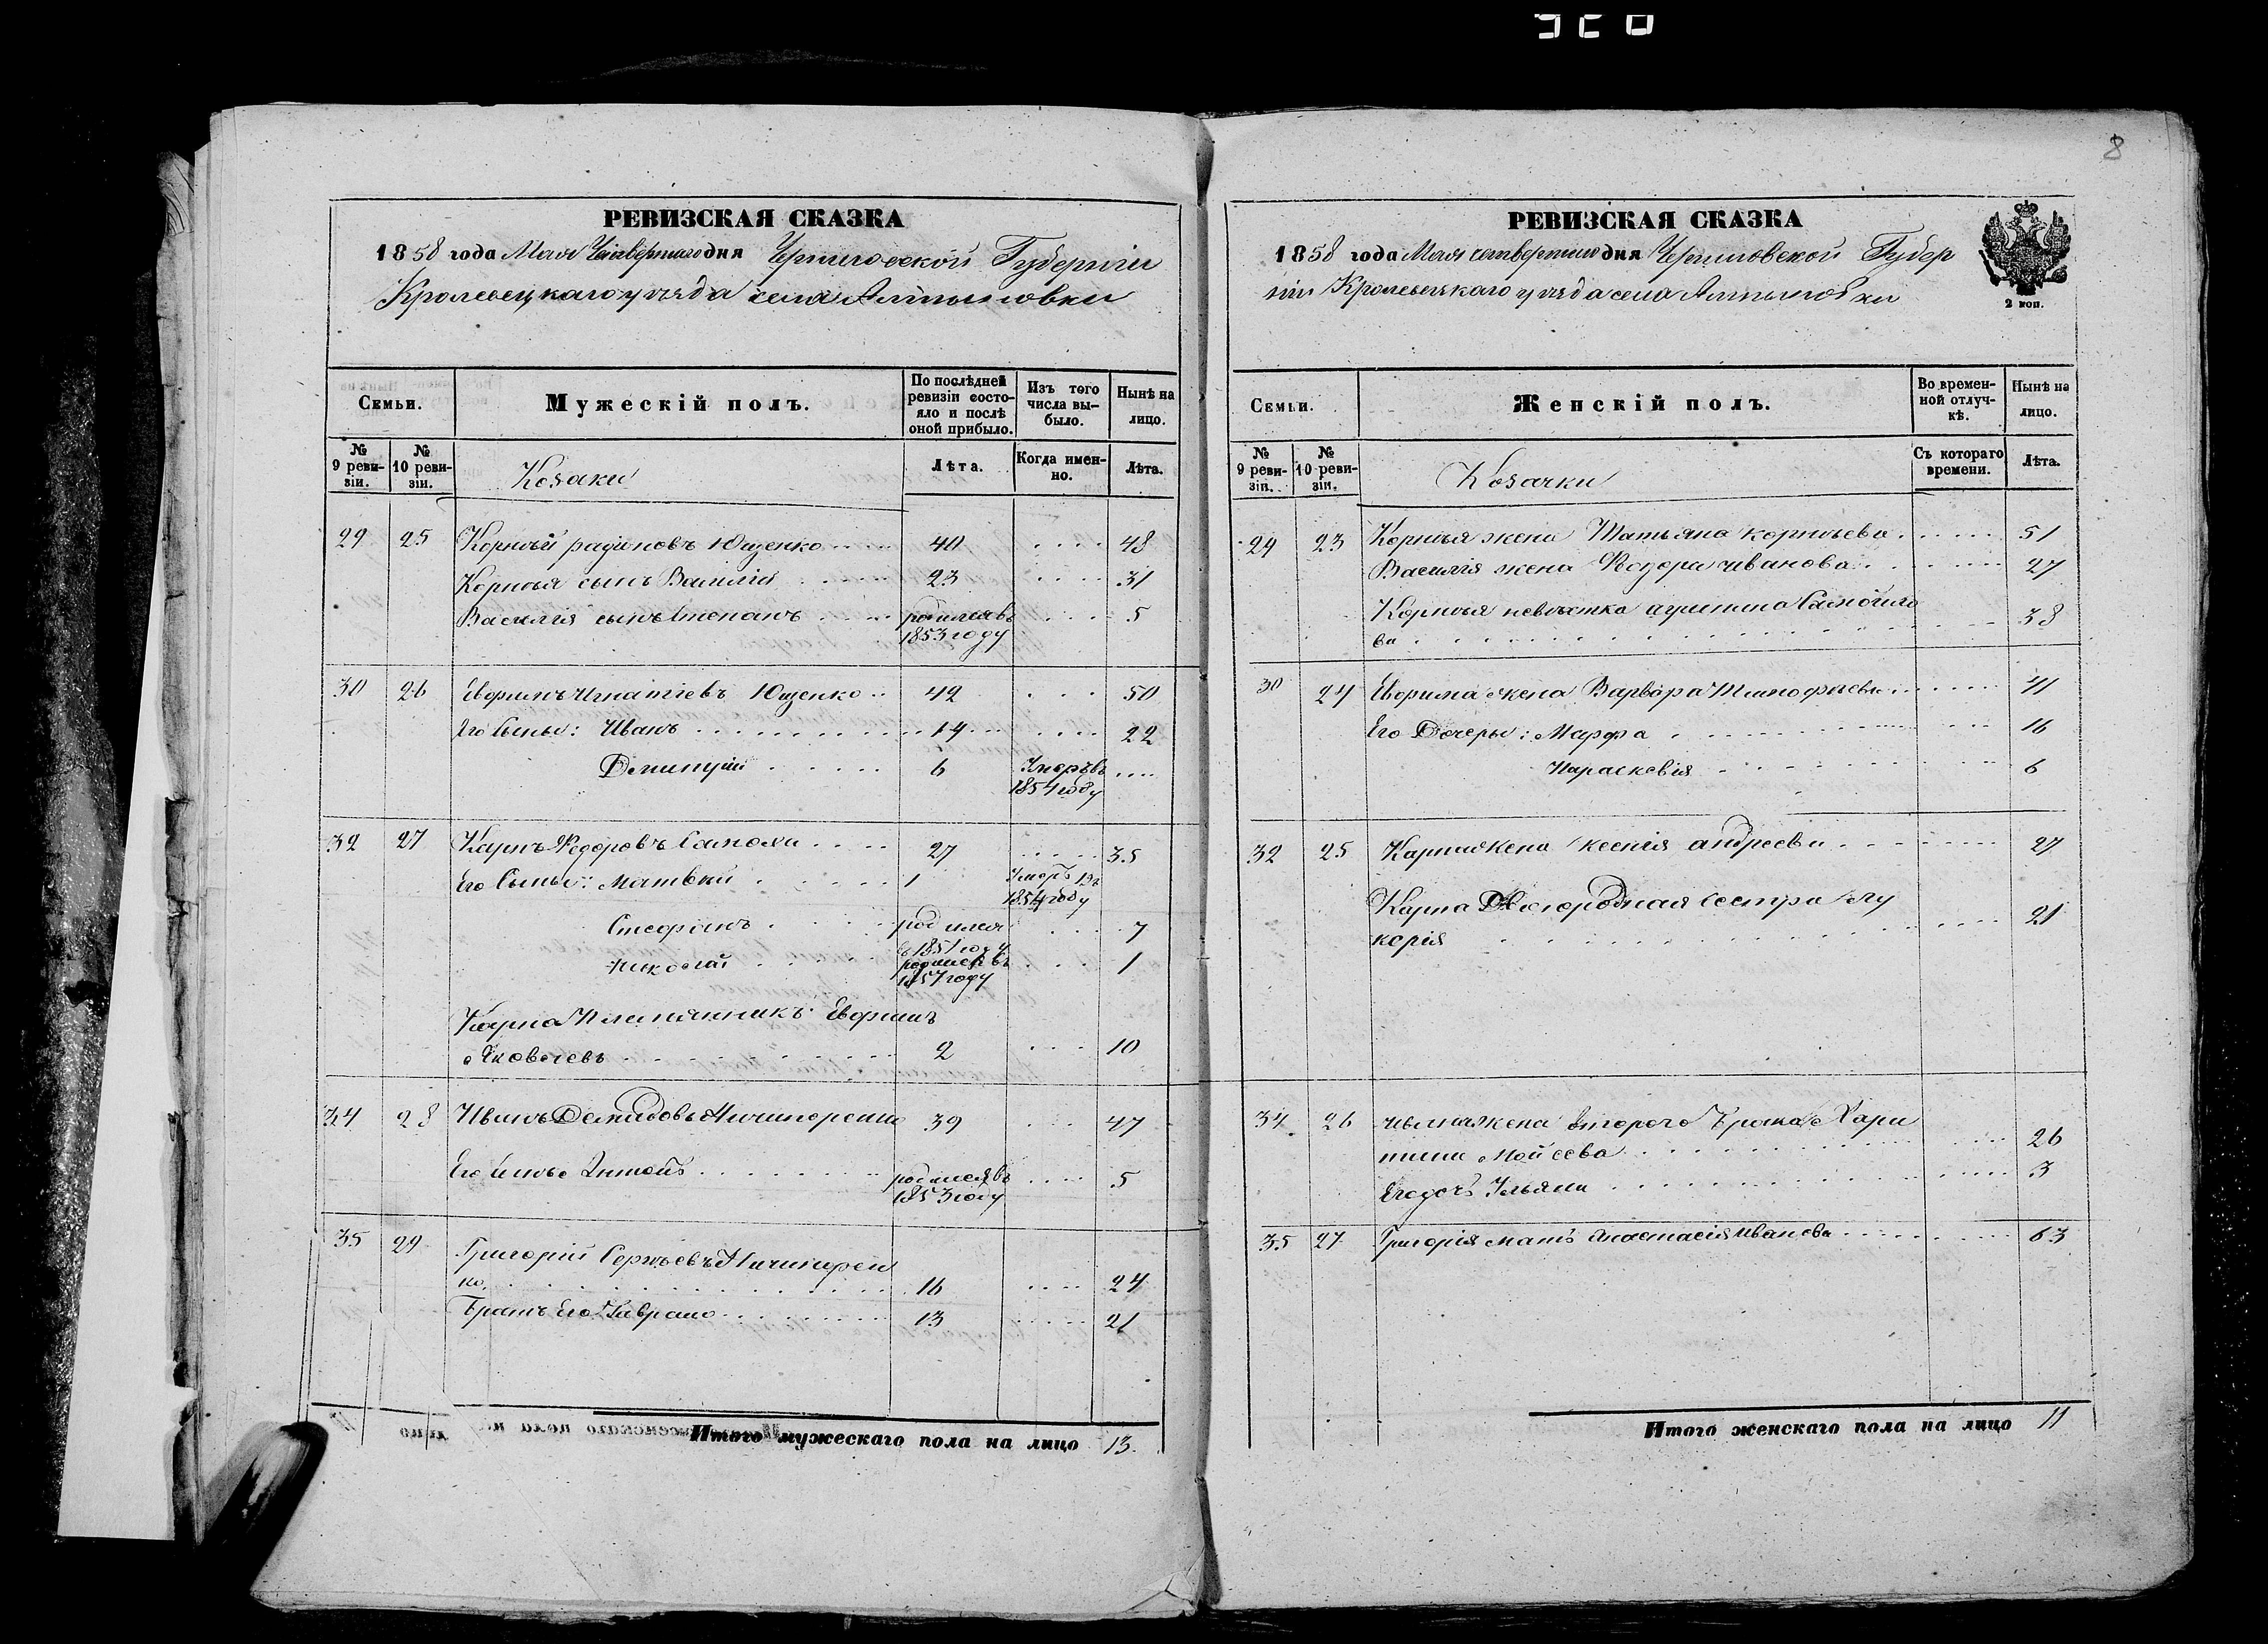 8
РЕВИЗСКАЯ СКАЗКА
1858 года Мая Четвертаго дня Черниговской Губерніи
Кролевецкаго уезда села Алтыновки
Семьи.
Мужескій полъ.
По послѣдней ревизіи состояло и послѣ оной прибыло.
Изъ того числа выбыло.
Нынѣ на лицо.
№ 9 ревизіи.
№ 10 ревизіи.
Козаки
Лѣта.
Когда именно.
Лѣта.
29 25 Корнѣй радіоновъ Ющенко 40 48
Корнѣя сынъ Василій 23 31
Василія сынъ Степанъ родился въ 5
1853 году
30 26 Ефримъ Игнатіевъ Ющенко 42 50
Его Сыны: Иванъ 14 22
Дмитрій 6 Умеръ въ
1854 году
32 27 Карпъ Федоровъ 27 35
Его Сыны: Матвѣй 1 Умеръ въ
1854 году
Стефанъ родился 7
в 1851 году
Николай родился въ 1
1857 году
Карпа Племянникъ Ефримъ
Яковлевъ 2 10
34 28 Иванъ Демидовъ Ничипоренко 39 47
Его Сынъ Антонъ родился въ 5
1853 году
35 29 Григорій Сергѣевъ Ничипорен
ко 16 24
Братъ Его Гаврило 13 21
Итого мужескаго пола на лицо 13.
РЕВИЗСКАЯ СКАЗКА
1858 года Мая четвертаго дня Черниговской Губер
ніи Кролевецкаго уезда села Алтыновки
2 коп.
Семьи.
Женскій полъ.
Во временной отлучкѣ.
Нынѣ на лицо.
№ 9 ревизіи.
№ 10 ревизіи.
Козачки
Съ котораго времени.
Лѣта.
29 23 Корнѣя жена Татьяна корнѣева 51
Василія жена Федора иванова 27
Корнѣя невѣстка агрипина Самойло
ва 38
30 24 Ефрима жена Варвара Тимофѣева 41
Его Дочеры: Марфа 16
Параскевія 6
32 25 Карпа жена ксенія андреева 27
Карпа Двоюродная Сестра Лу
керія 21
34 26 ивана жена второго брака Хари
тина Мойсева 26
Его дочь Ульяна 3
35 27 Григорія мать Анастасія иванова 63
Итого женскаго пола на лицо 11